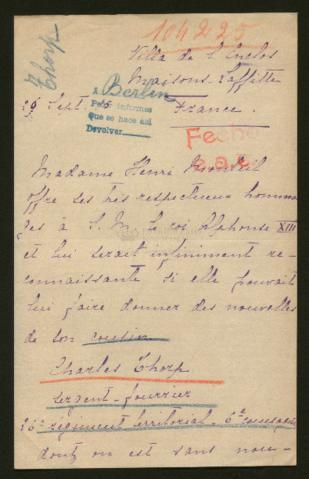 104225
Thorp
Villa de l'Enclos
Maisons-Laffitte
France.
29 Sept.
A Berlin
Pedir informes
Que se hace así
Devolver
Fecho
Madame Henri
offre ses très respectueux homma
ges à S. M. le roi Alphonse XIII
et lui serait infiniment re-
connaissante si elle pouvait
lui faire donner des nouvelles
de son cousin
Charles Thorp
sergent-fourrier
26e régiment territorial. 6e compagnie
dont on est sans nou-